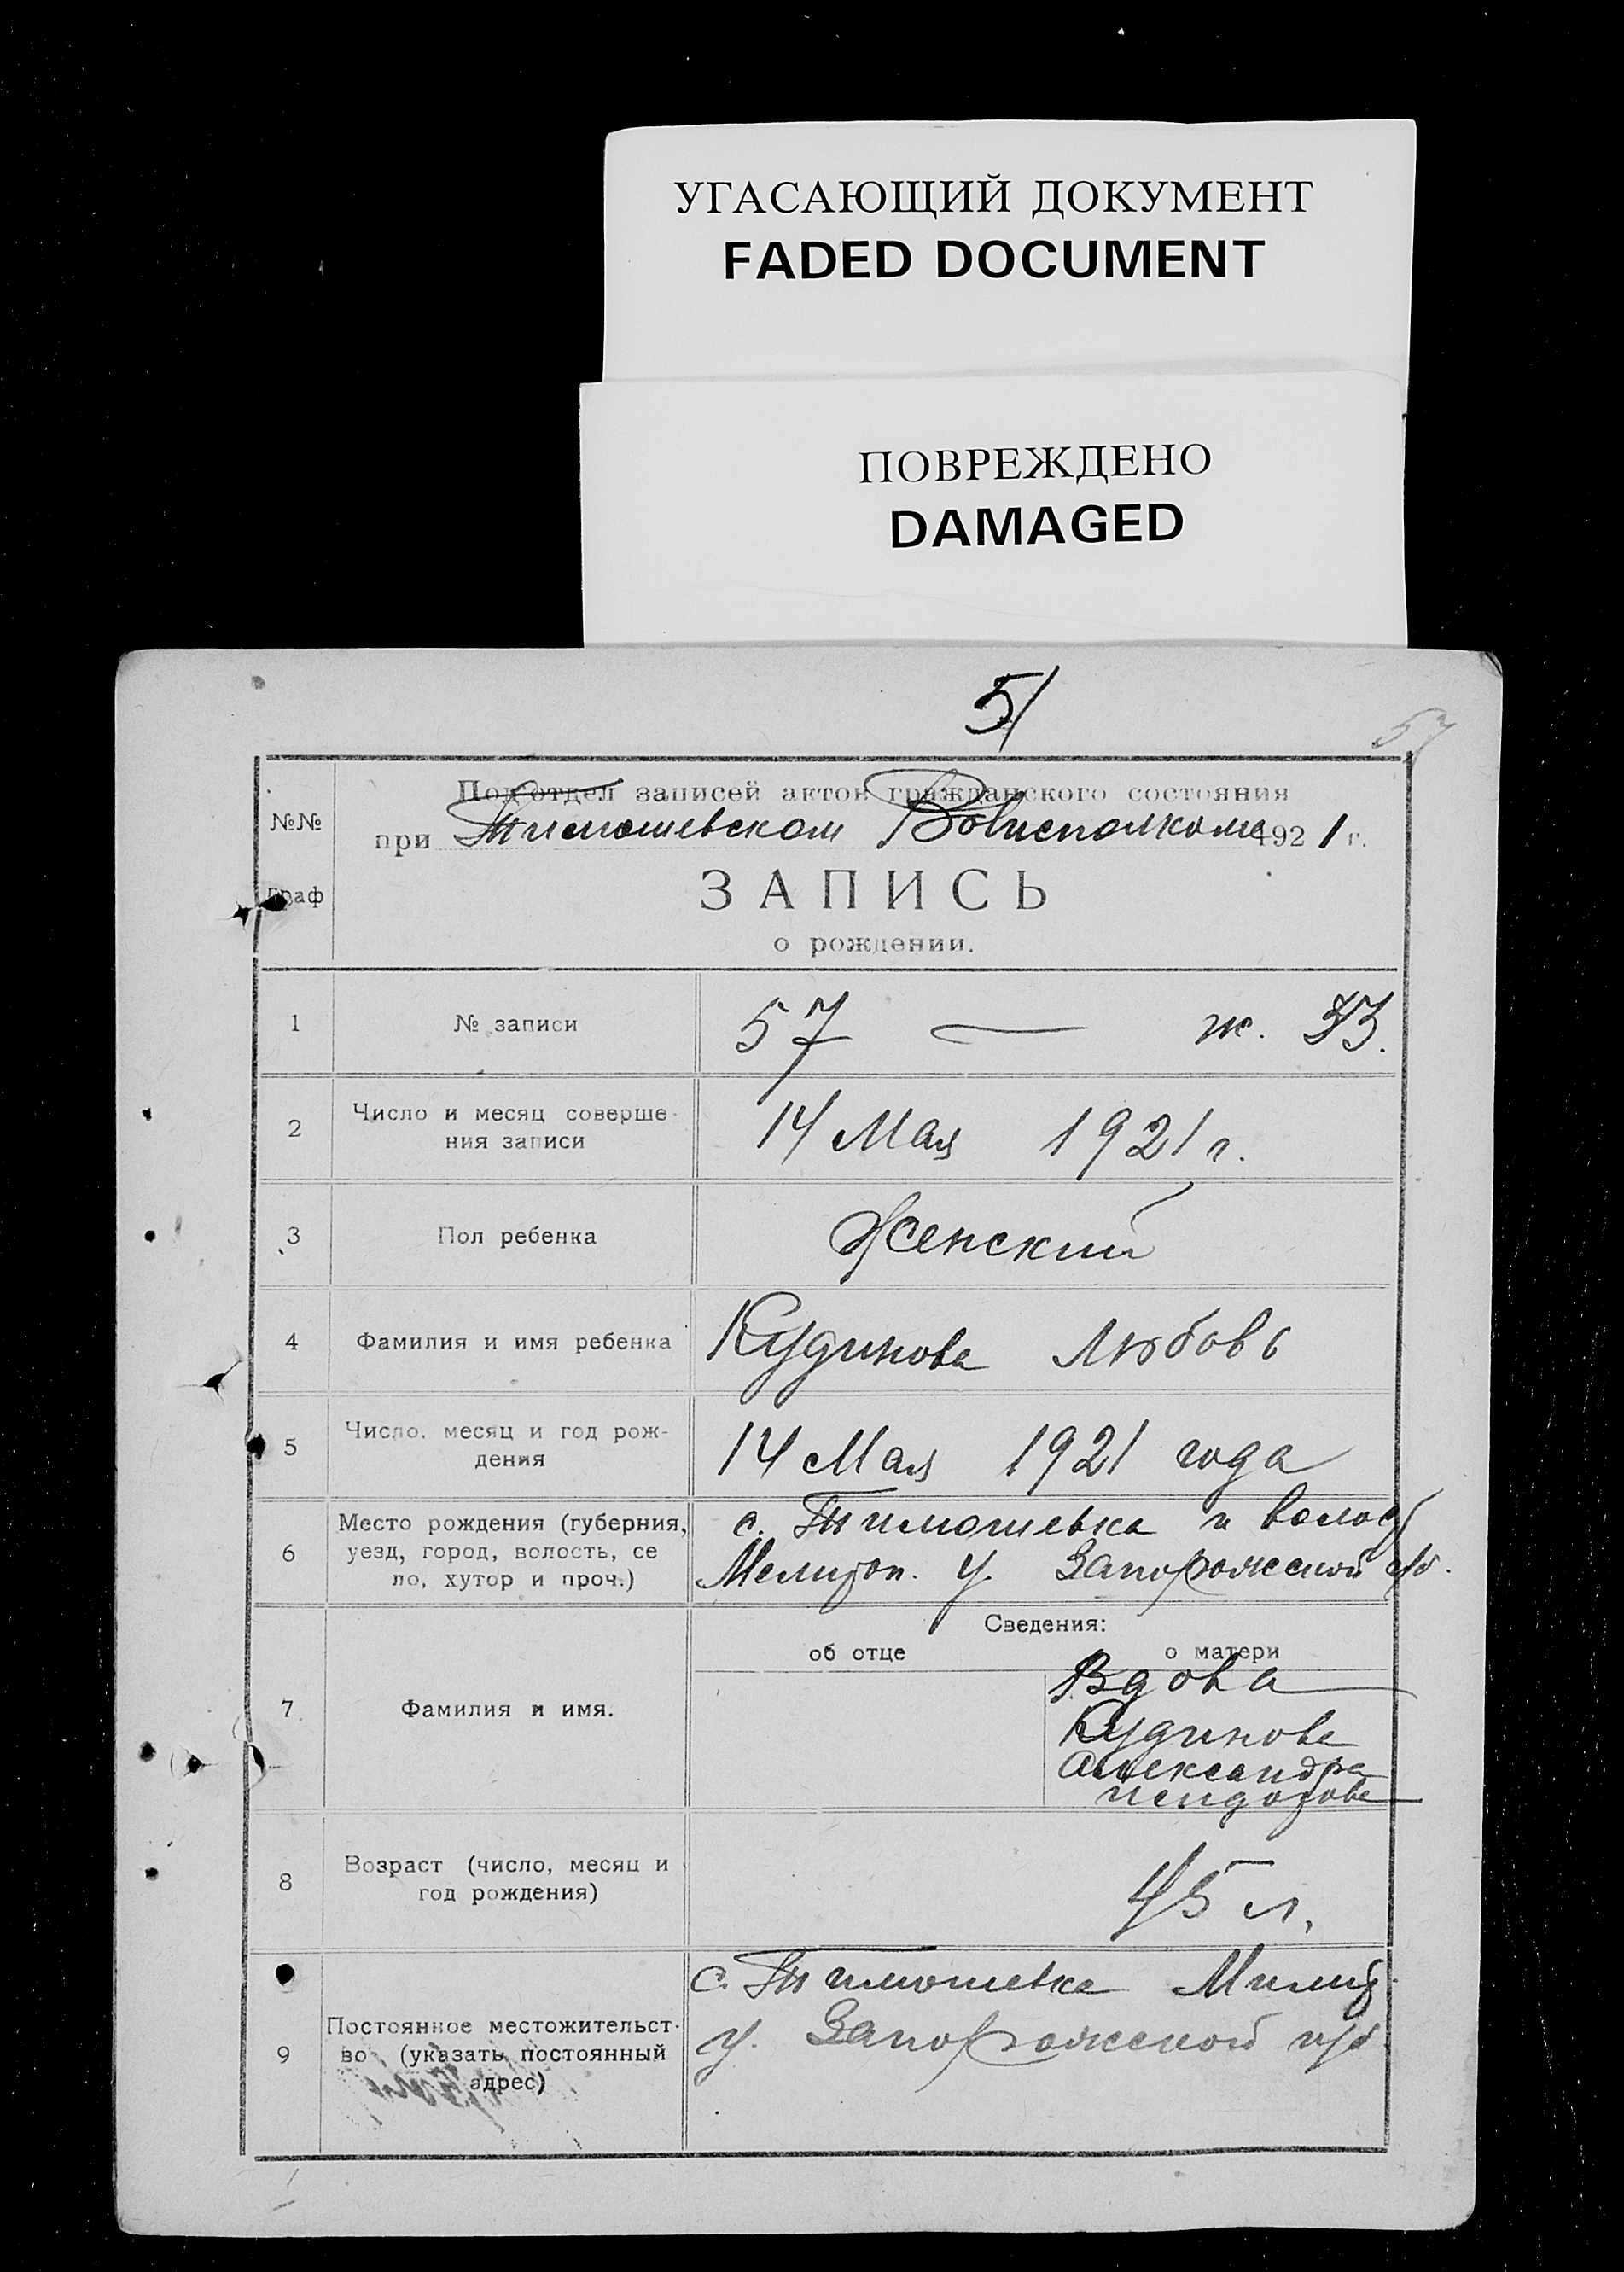 УГАСАЮЩИЙ ДОКУМЕНТ
FADED DOCUMENT
ПОВРЕЖДЕНО
DAMAGED
51
57
№№ граф
Подотдел записей актов гражданского состояния
при Тимошевском Волисполкоме 1921 г.
ЗАПИСЬ
о рождении.
1 № записи 57 — ж. 33.
2 Число и месяц соверше-
ния записи 14 Мая 1921 г.
3 Пол ребенка Женский
4 Фамилия и имя ребенка Кудинова Любовь
5 Число, месяц и год рож-
дения 14 Мая 1921 года
6 Место рождения (губерния,
уезд, город, волость, се
ло, хутор и проч.)
с. Тимошевка и волос
Мелитоп. у. Запорожской губ.
Сведения:
об отце о матери
7 Фамилия и имя.
Вдова
Кудинова
Александра
8 Возраст (число, месяц и
год рождения) 45 л.
9 Постоянное местожительст-
во (указать постоянный
адрес)
с. Тимошевка Мелит.
у. Запорожской губ.